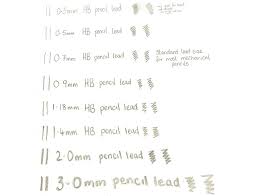 0.3mm HB pencil lead
0.5mm HB pencil lead
0.7mm HB pencil lead
Standard lead size
for most mechanical
pencils
0.9mm HB pencil lead
1.18mm HB pencil lead
1.4mm HB pencil lead
2.0mm HB pencil lead
3.0mm pencil lead